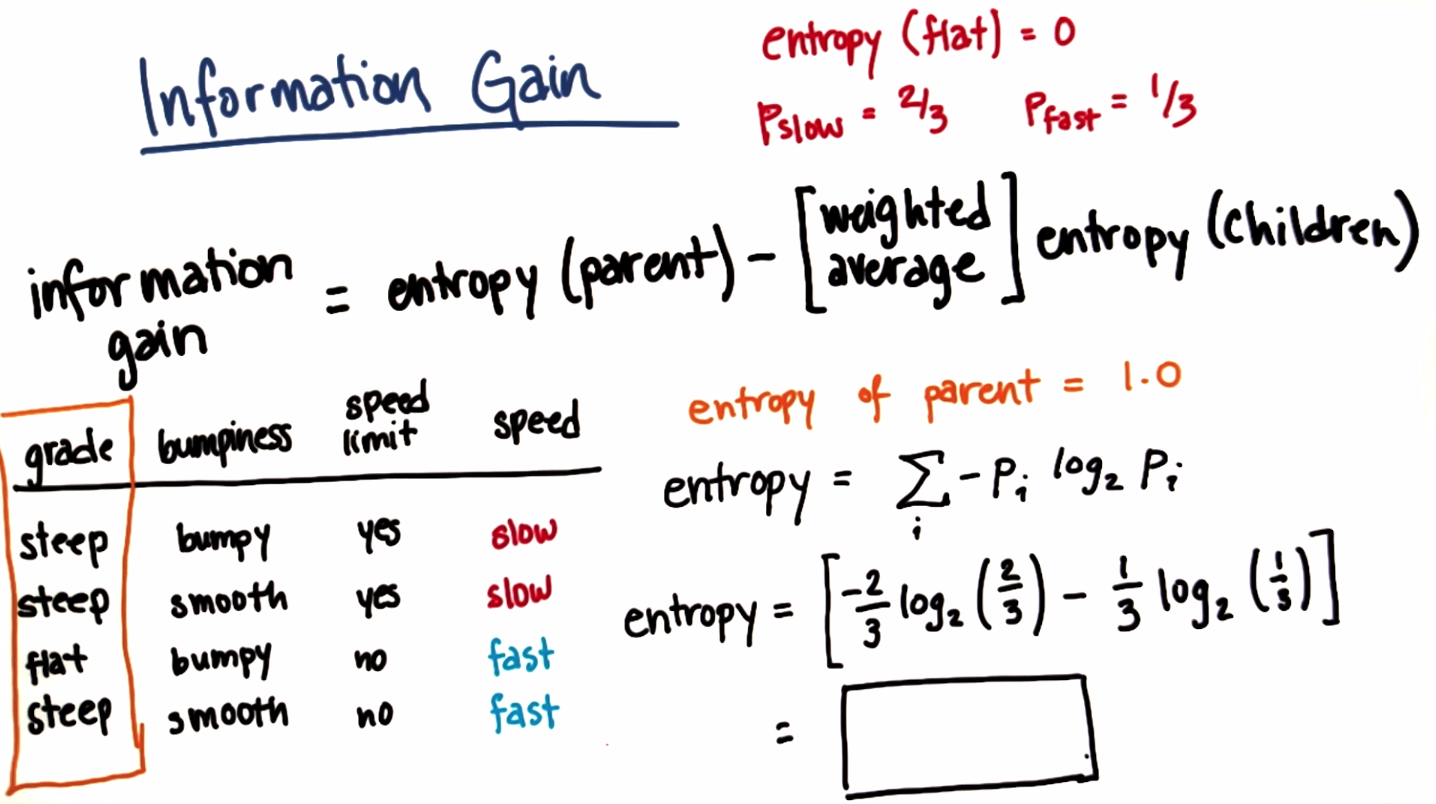 Information Gain
entropy (flat) = 0
Pslow = 2/3 Pfast = 1/3
information gain = entropy (parent) - [weighted average] entropy (children)
grade bumpiness speed limit speed
steep bumpy yes slow
steep smooth yes slow
flat bumpy no fast
steep smooth no fast
entropy of parent = 1.0
entropy = ∑i -Pi log2 Pi
entropy = [-2/3 log2 (2/3) - 1/3 log2 (1/3)]
=